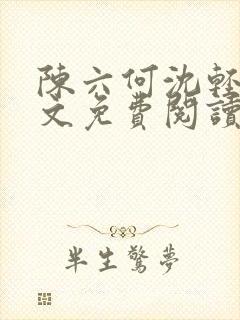 陳六何沈輕
文免費閱讀
半生驚夢